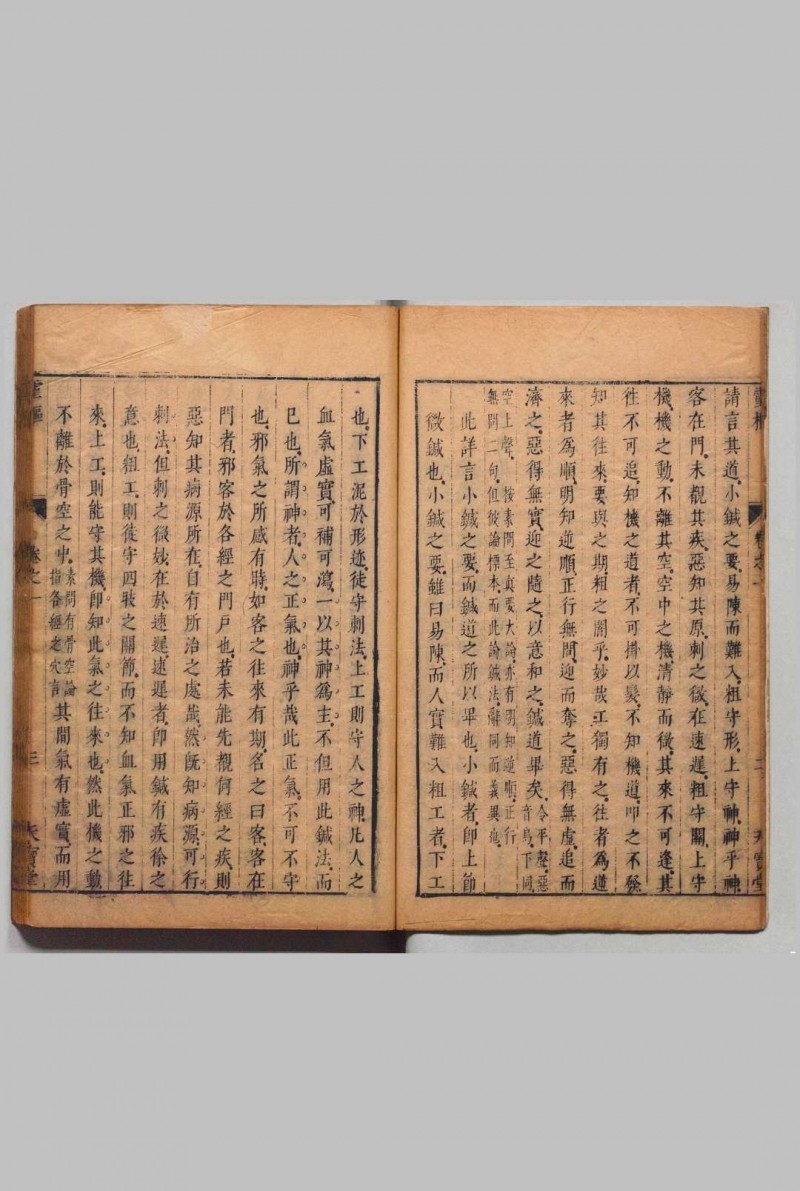 請言其道小鍼之要易陳而難入粗守形上守神神乎神
客在門未覩其疾惡知其原刺之微在速遲粗守關上守
機機之動不離其空空中之機清靜而微其來不可逢其
往不可追知機之道者不可掛以髮不知機道叩之不發
知其往來要與之期粗之闇乎妙哉工獨有之往者為逆
來者為順明知逆順正行無問迎而奪之惡得無虛追而
濟之惡得無實迎之隨之以意和之鍼道畢矣令平聲惡
音烏下同
空上聲 按素問至真要大論亦有明知逆順正行
無問二句但彼論標本而此論鍼法辭同而義異也
此詳言小鍼之要而鍼道之所以畢也小鍼者即上節
微鍼也小鍼之要雖曰易陳而人實難入粗工者下工
靈樞
卷之一
二
天寶堂
也下工泥於形迹徒守刺法上工則守人之神凡人之
血氣虛實可補可瀉一以其神為主不但用此鍼法而
已也所謂神者人之正氣也神乎哉此正氣不可不守
也邪氣之所感有時如客之往來有期名之曰客客在
門者邪客於各經之門戶也若未能先覩何經之疾則
惡知其病源所在自有所治之處哉然既知病源可行
刺法但刺之微妙在於速遲速遲者即用鍼有疾徐之
意也粗工則徒守四肢之關節而不知血氣正邪之往
來上工則能守其機即知此氣之往來也然此機之動
不離於骨空之中素問有骨空論
指各經之穴言其間氣有虛實而用
靈樞
卷之一
三
天寶堂